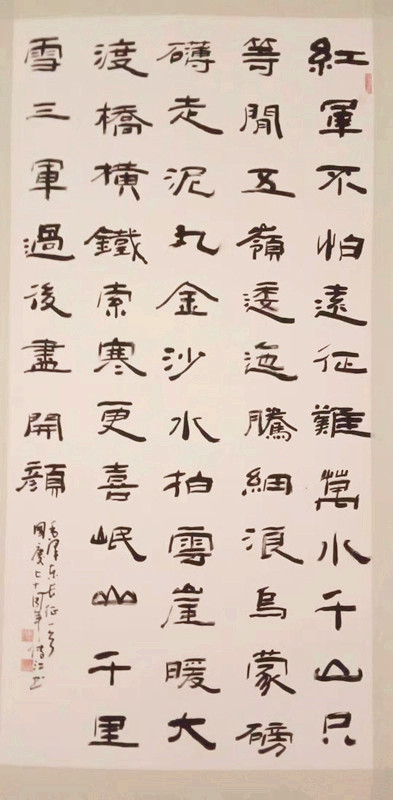 紅軍不怕遠征難萬水千山只
等閒五嶺逶迤騰細浪烏蒙磅
礴走泥丸金沙水拍雲崖暖大
渡橋橫鐵索寒更喜岷山千里
雪三軍過後盡開顏
毛澤东长征一首
國慶七十周年
江书